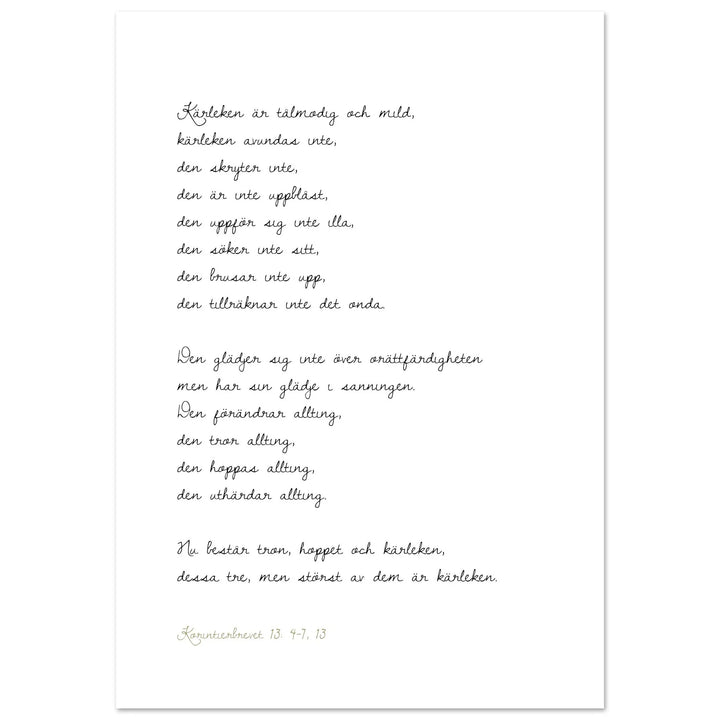 Kärleken är tålmodig och mild,
kärleken avundas inte,
den skryter inte,
den är inte uppblåst,
den uppför sig inte illa,
den söker inte sitt,
den brusar inte upp,
den tillräknar inte det onda.
Den glädjer sig inte över orättfärdigheten
men har sin glädje i sanningen.
Den förändrar allting,
den tror allting,
den hoppas allting,
den uthärdar allting.
Nu består tron, hoppet och kärleken,
dessa tre, men störst av dem är kärleken.
Korintierbrevet 13: 4-7, 13